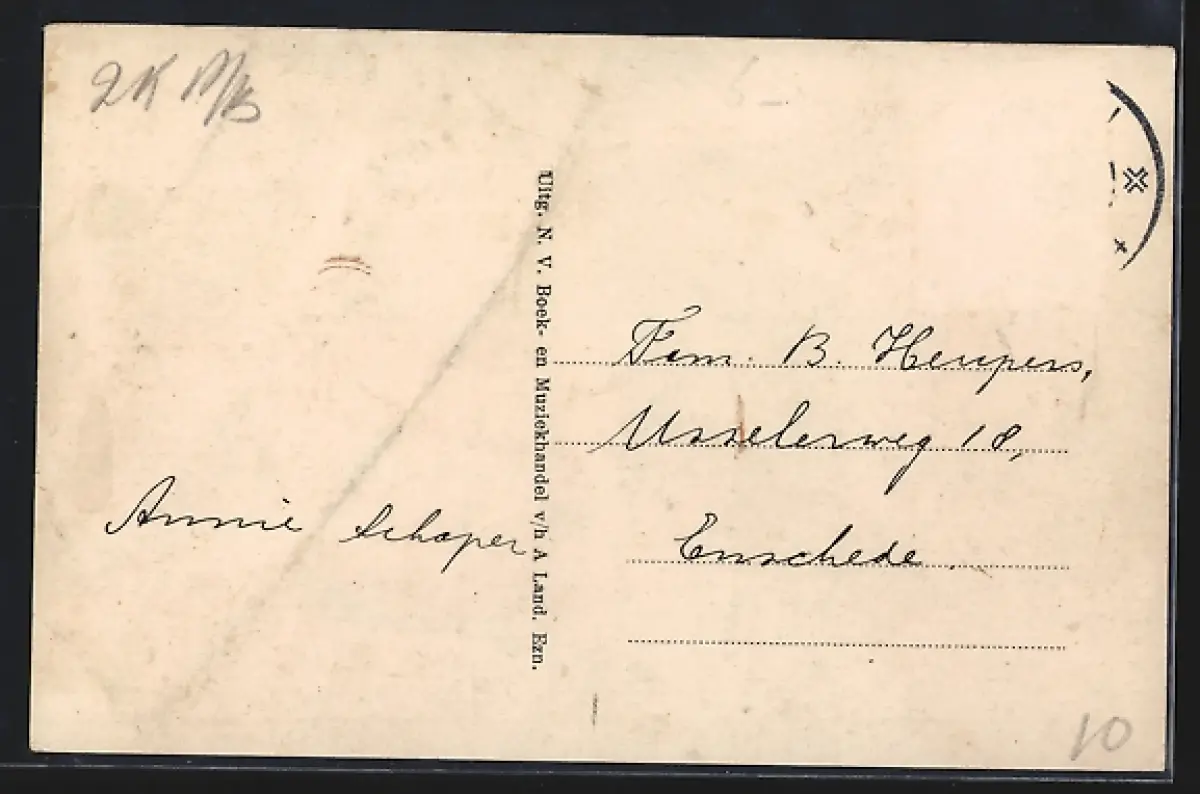 2K
Uitg. N. V. Boek- en Muziekhandel v/h A Land. Ezn.
Fam. B. Heupers,
Usselerweg 18,
Enschede.
Annie Schaper
10